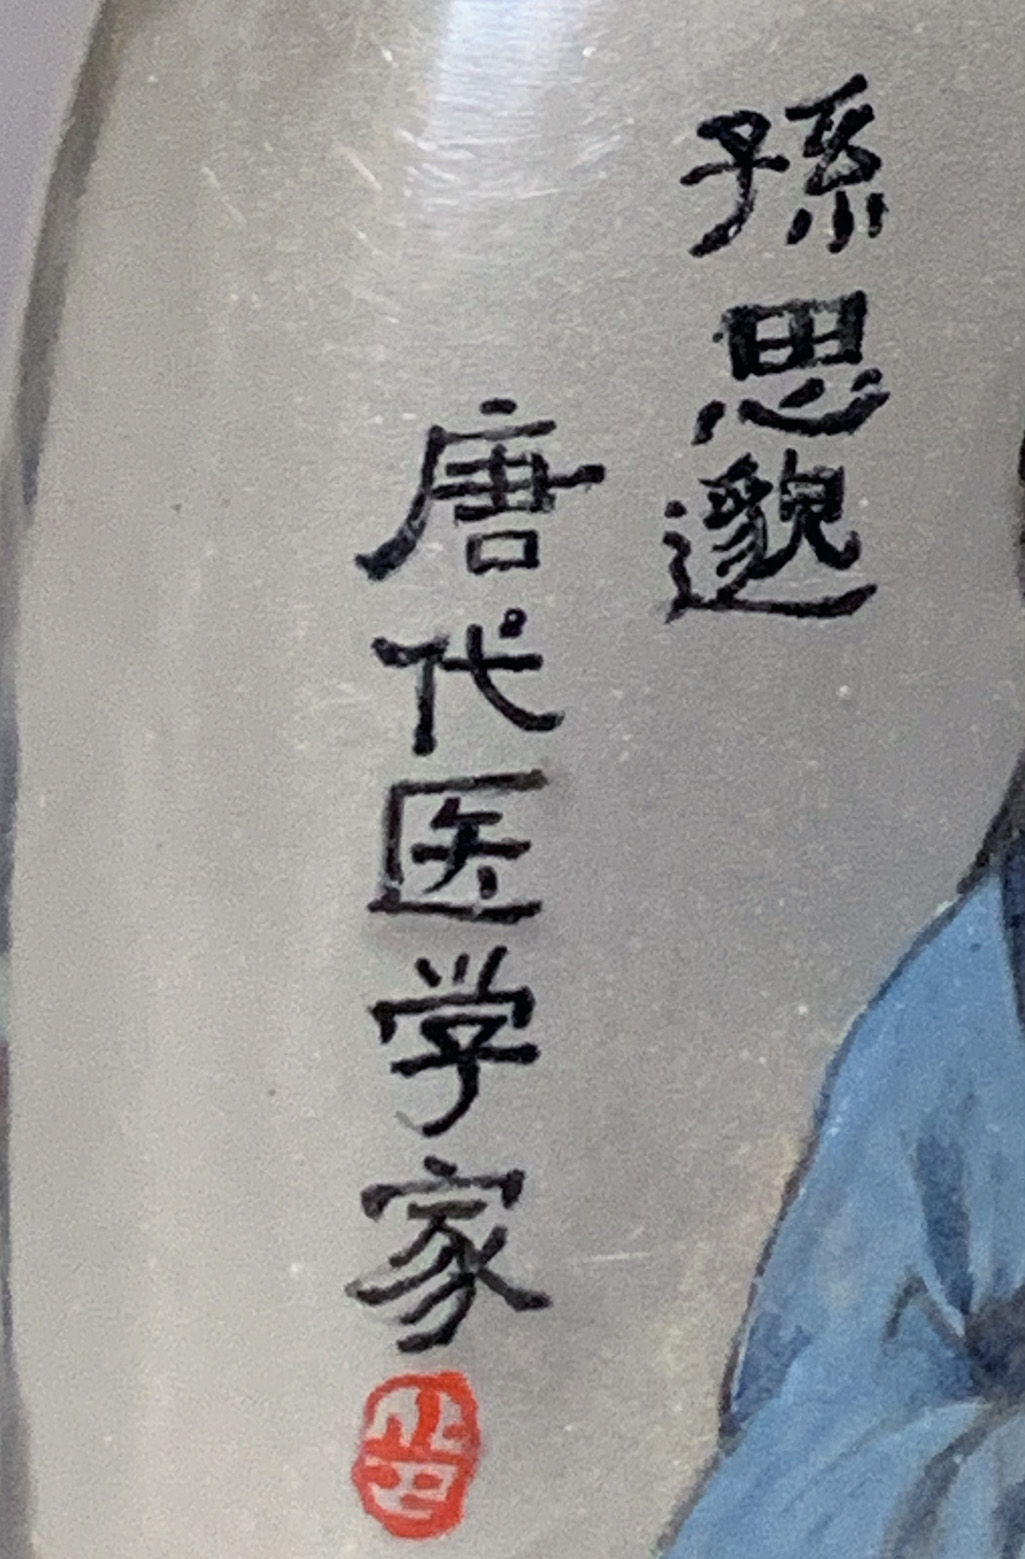 孫思邈
唐代医学家